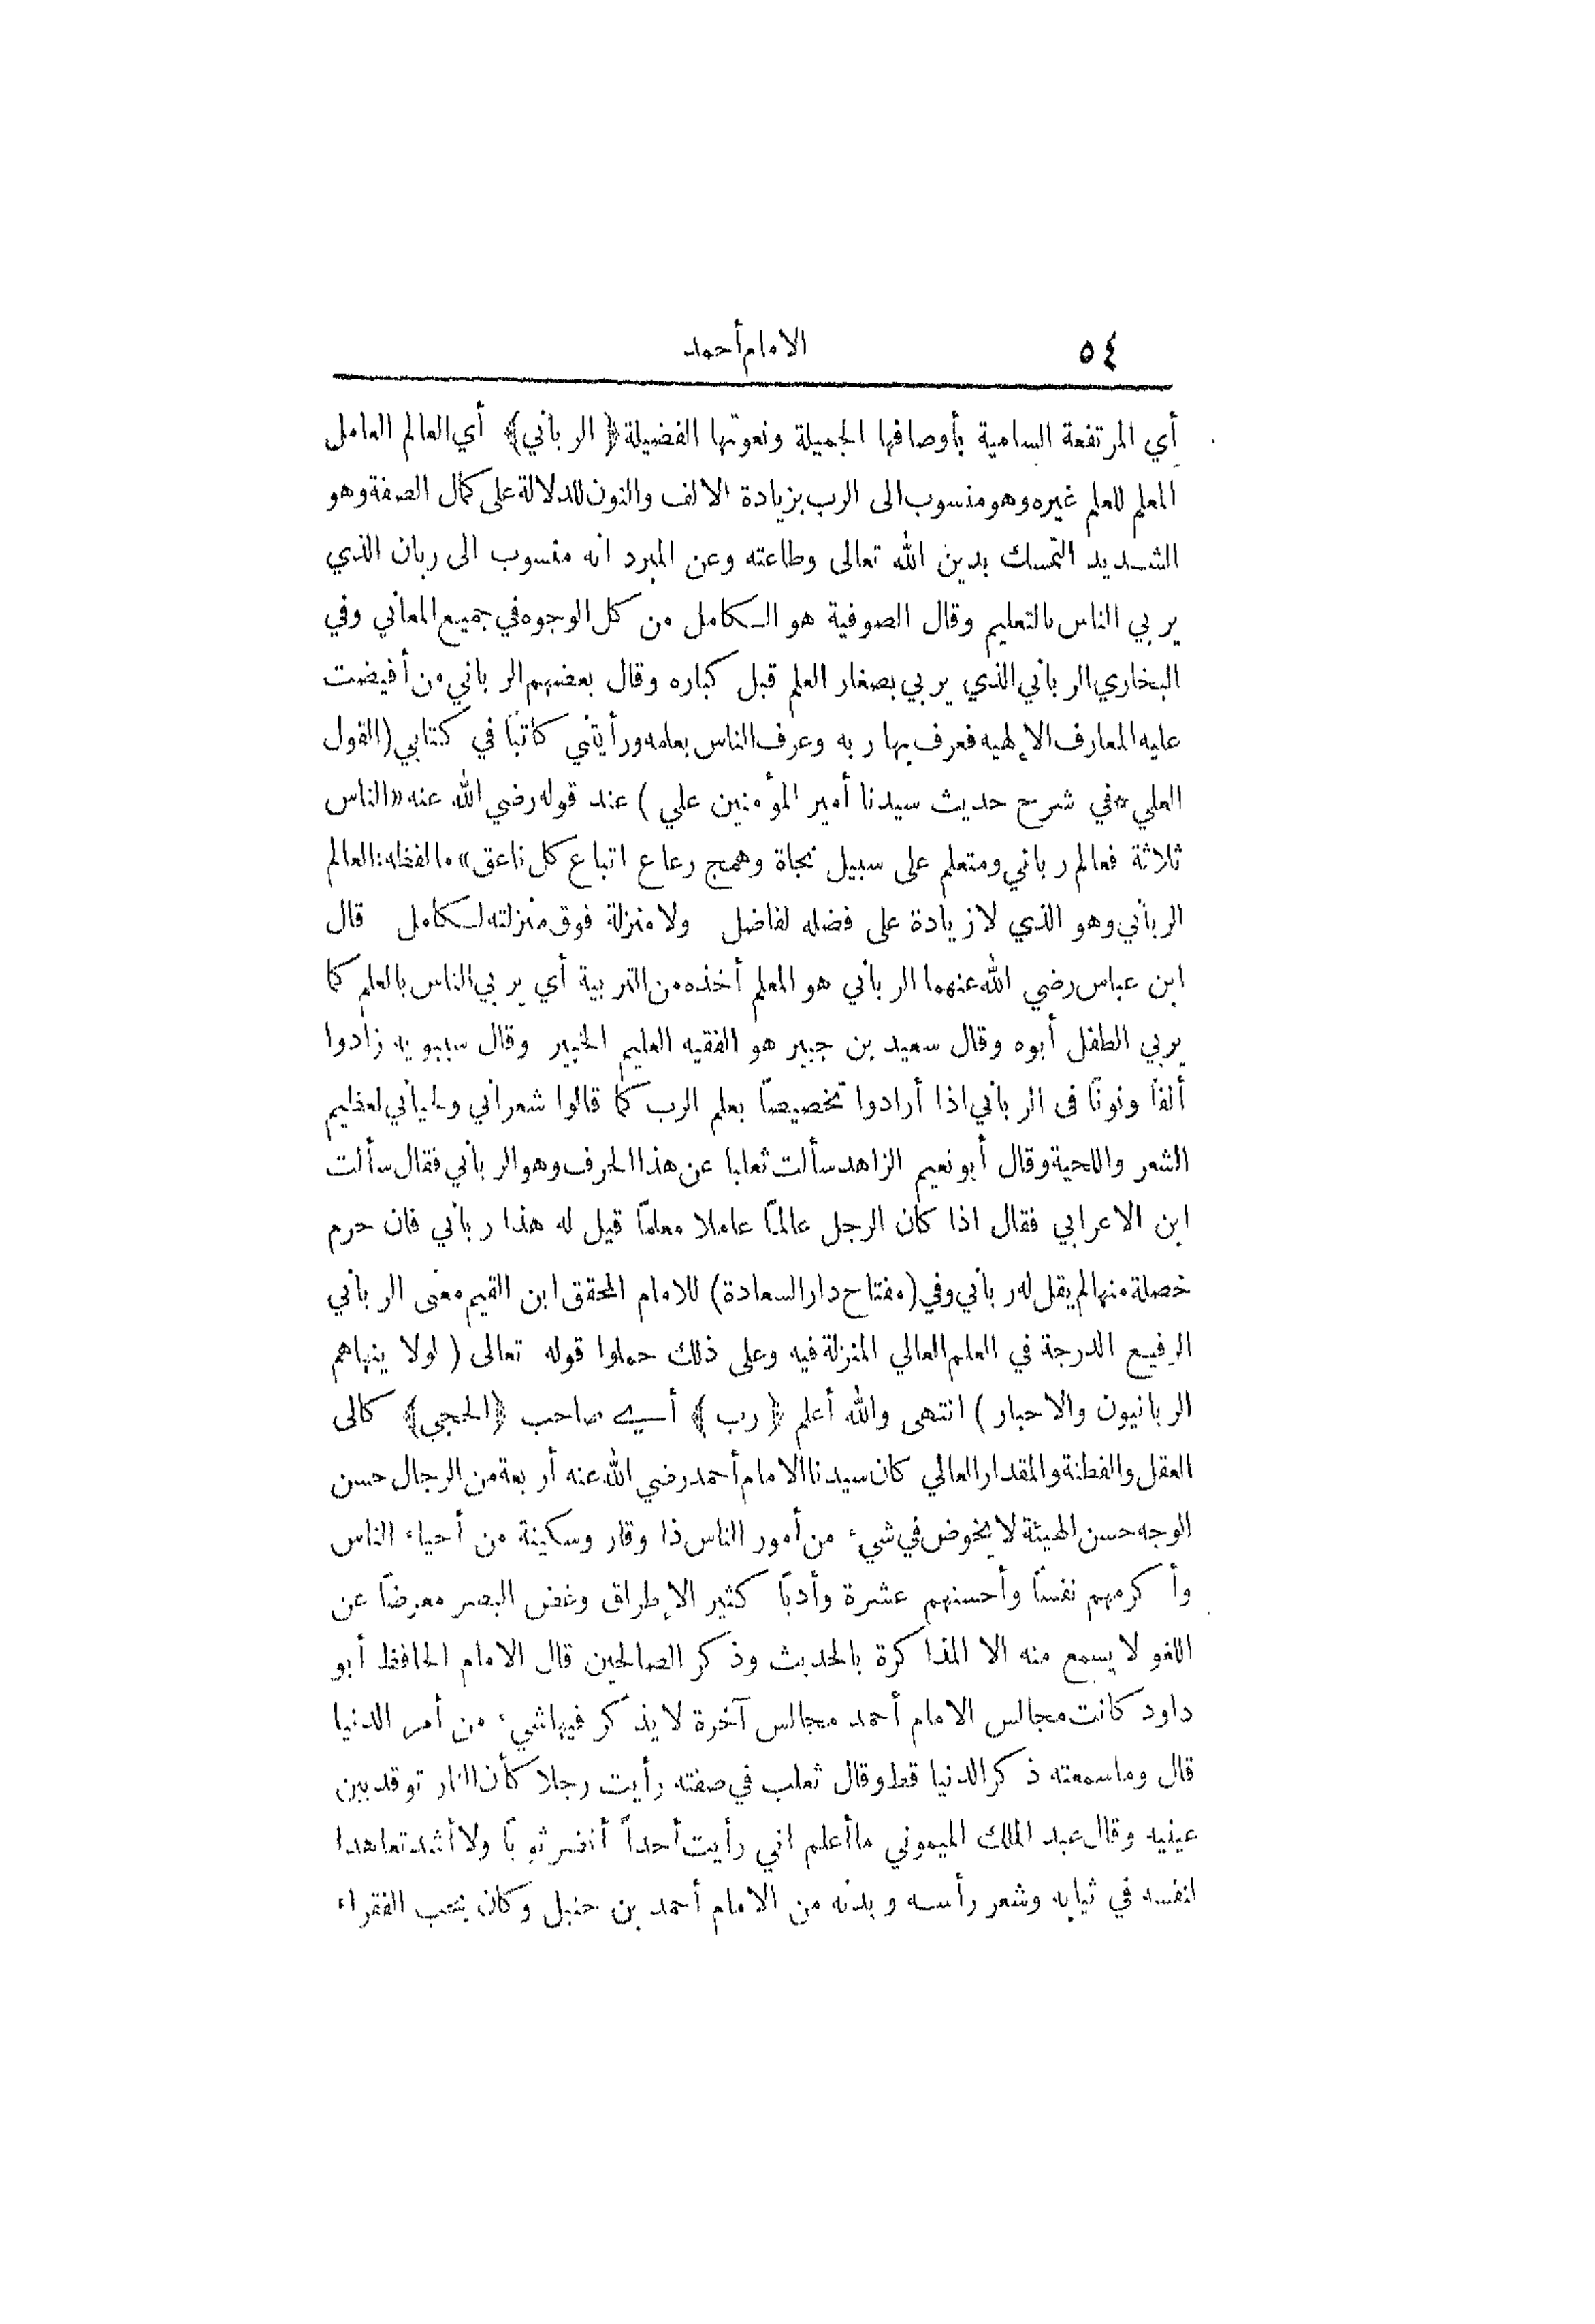 ٥٤ الامام أحمد
أي المرتفعة السامية بأوصافها الجميلة ونعوتها الفضيلة ﴿ الرباني ﴾ أي العالم العامل
المعلم للعلم غيره وهو منسوب الى الرب بزيادة الالف والنون للدلالة على كمال الصفة وهو
الشديد التمسك بدين الله تعالى وطاعته وعن المبرد انه منسوب الى ربان الذي
يربي الناس بالتعليم وقال الصوفية هو الكامل من كل الوجوه في جميع المعاني وفي
البخاري الرباني الذي يربي بصغار العلم قبل كباره وقال بعضهم الرباني من أفيضت
عليه المعارف الإلهيه فعرف بها ربه وعرف الناس بعلمه ورأيتني كاتبًا في كتابي (القول
العلي في شرح حديث سيدنا أمير المؤمنين علي ) عند قوله رضي الله عنه «الناس
ثلاثة فعالم رباني ومتعلم على سبيل نجاة وهمج رعاع اتباع كل ناعق» ما لفظه: العالم
الرباني وهو الذي لا زيادة على فضله لفاضل ولا منزلة فوق منزلته لكامل قال
ابن عباس رضي الله عنهما الرباني هو المعلم أخذه من التربية أي يربي الناس بالعلم كما
يربي الطفل أبوه وقال سعيد بن جبير هو الفقيه العليم الخبير وقال سيبويه زادوا
ألفًا ونونًا فى الرباني اذا أرادوا تخصيصًا بعلم الرب كما قالوا شعراني ولحياني لعظيم
الشعر واللحية وقال أبو نعيم الزاهد سألت ثعلبا عن هذا الحرف وهو الرباني فقال سألت
ابن الاعرابي فقال اذا كان الرجل عالمًا عاملا معلمًا قيل له هذا رباني فان حرم
خصلة منها لم يقل له رباني وفي (مفتاح دار السعادة) للامام المحقق ابن القيم معنى الرباني
الرفيع الدرجة في العلم العالي المنزلة فيه وعلى ذلك حملوا قوله تعالى ( لولا ينهاهم
الربانيون والاحبار ) انتهى والله أعلم ﴿ رب ﴾ أي صاحب ﴿الحجي﴾ كالى
العقل والفطنة والمقدار العالي كان سيدنا الامام أحمد رضي الله عنه أربعة من الرجال حسن
الوجه حسن الهيئة لا يخوض في شيء من أمور الناس ذا وقار وسكينة من أحياء الناس
وأكرمهم نفسًا وأحسنهم عشرة وأدبًا كثير الإطراق وغض البصر معرضًا عن
اللغو لا يسمع منه الا المذاكرة بالحديث وذكر الصالحين قال الامام الحافظ أبو
داود كانت مجالس الامام أحمد مجالس آخرة لا يذكر فيها شيء من أمر الدنيا
قال وما سمعته ذكر الدنيا قط وقال ثعلب في صفته رأيت رجلا كأن النار توقد بين
عينيه وقال عبد الملك الميموني ما أعلم اني رأيت أحداً أنضر ثوبًا ولا أشد تعاهدا
لنفسه في ثيابه وشعر رأسه وبدنه من الامام أحمد بن حنبل وكان يحب الفقراء